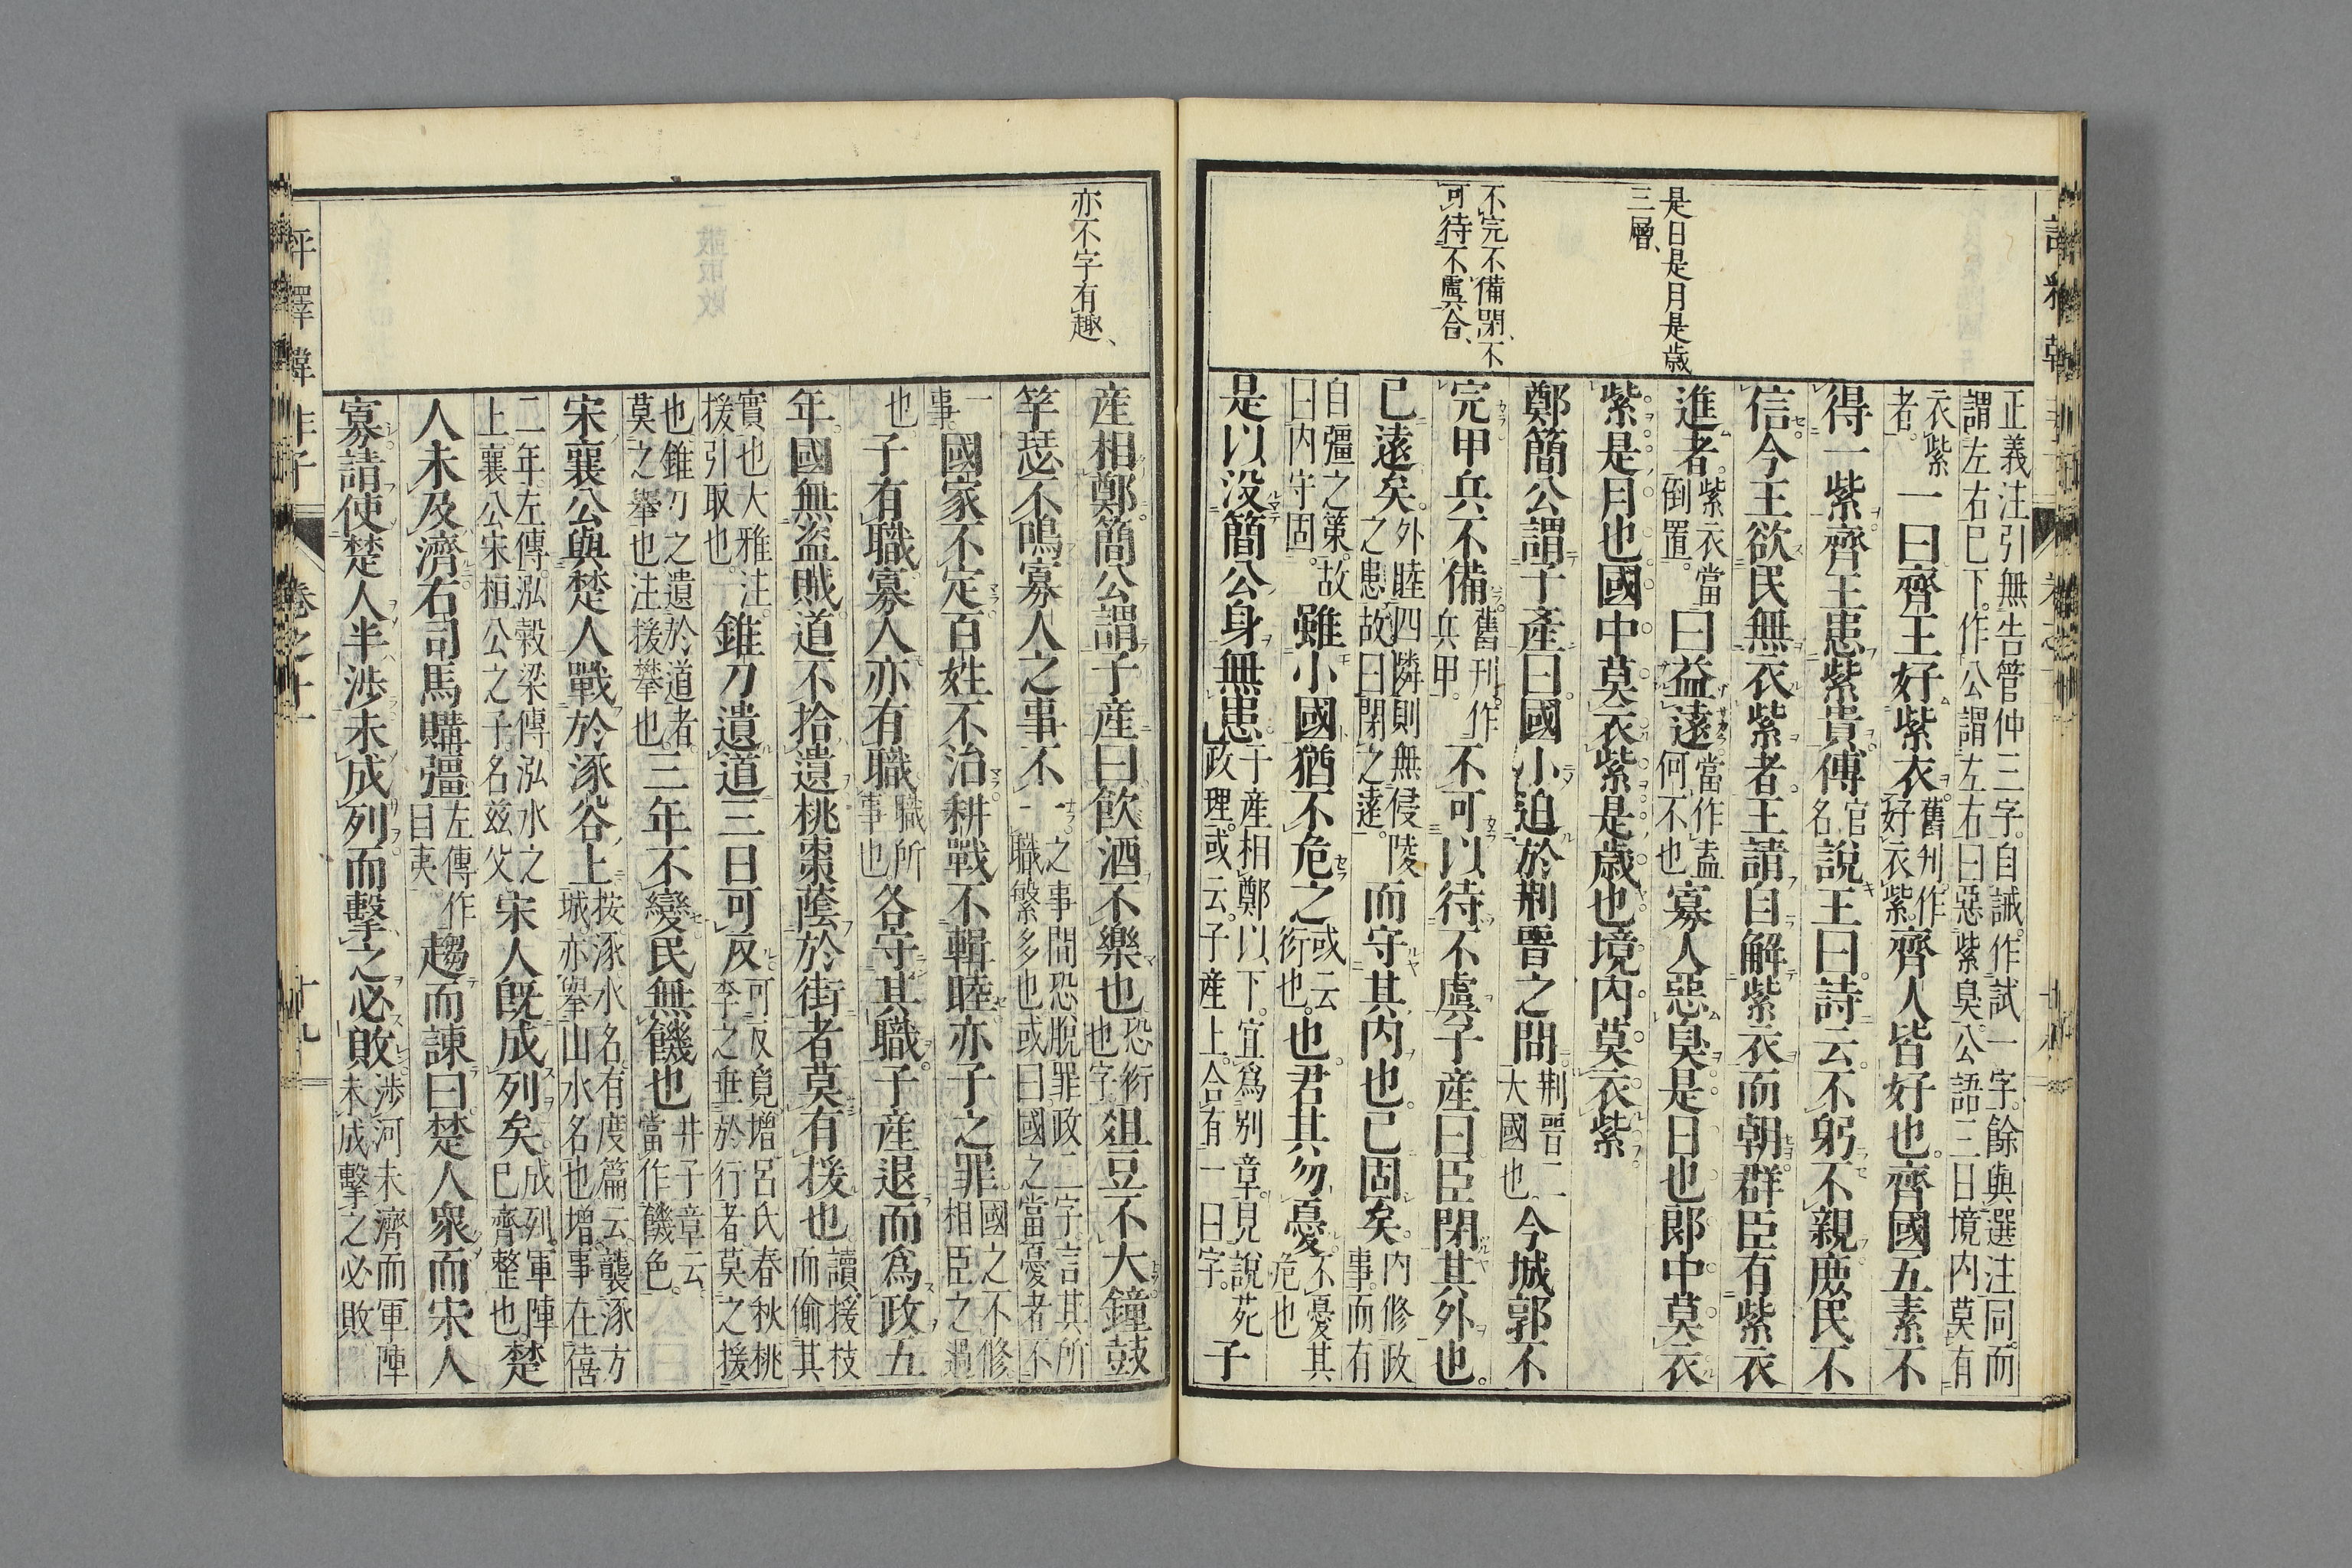 是日是月是歳
三層
不完不備閉不
可待不虞合
正義注引無告管仲三字自誡作試一字餘與選注同而
謂左右已下作公謂左右曰惡紫臭公語三日境内莫有
衣紫
者
一曰齊王好紫衣舊刋作好衣紫齊人皆好也齊國五素不
得一紫齊王患紫貴傅官名說王曰詩云不躬不親庶民不
信今王欲民無衣紫者王請自解紫衣而朝群臣有紫衣
進者紫衣當倒置曰益遠當作盍何不也寡人惡臭是日也郎中莫衣
紫是月也國中莫衣紫是歳也境内莫衣紫
鄭簡公謂子產曰國小迫於荆晉之間荆晉二大國也今城郭不
完甲兵不備舊刋作兵甲不可以待不虞子產曰臣閉其外也
已遠矣外睦四隣則無侵陵之患故曰閉之遠而守其内也已固矣内修政事而有
自彊之策故曰内守固雖小國猶不危之或云衍也也君其勿憂不憂其危也
是以没簡公身無患子産相鄭以下宜爲別章見說苑政理或云子産上合有一曰字子
亦不字有趣
産相鄭簡公謂子産曰飲酒不樂也恐衍也字俎豆不大鐘鼓
竽瑟不鳴寡人之事不一之事間恐脫罪政二字言其所職繁多也或曰國之當憂者不
一事國家不定百姓不治耕戰不輯睦亦子之罪國之不修相臣之過
也子有職寡人亦有職職所事也各守其職子産退而爲政五
年國無盗賊道不拾遺桃棗蔭於街者莫有援也讀援枝而偷其
實也大雅注援引取也錐刀遺道三日可反可反寛增呂氏春秋桃李之垂於行者莫之援
也錐刀之遺於道者莫之舉也注援攀也三年不變民無饑也井子章云當作饑色
宋襄公與楚人戰於涿谷上按涿水名有度篇云襲涿方城亦舉山水名也增事在僖
二年左傳泓榖梁傳泓水之上襄公宋桓公之子名兹父宋人既成列矣成列軍陣已齊整也楚
人未及濟右司馬購彊左傳作目夷趨而諫曰楚人衆而宋人
寡請使楚人半渉未成列而擊之必敗渉河未濟而軍陣未成擊之必敗
評釋韓非子
卷之十一
十九